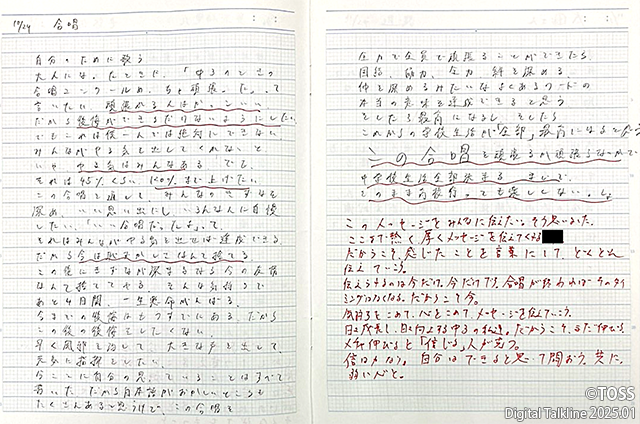 10/24 合唱
自分のために歌う
大人になったときに、「中3のときの
合唱コンクール、もっと頑張った」って
言いたい。頑張れる人はかっこいい
だから後悔ができるだけないようにしたい。
でもこれは俺一人では絶対にできない
みんながやる気を出してくれないと
いや、やる気はみんなある でも、
それは95%くらい。150%まで上げたい。
この合唱を通して、みんなのきずなを
深め、いい思い出にし、いろんな人に自慢
したい。「いい合唱だったよ」って
それはみんながやる気を出せば達成できる
だから今は
この後にきずなが深まるなら今の
なんて捨ててやる。そんな気持ちで
あと4日間、一生懸命がんばる。
今までの後悔はもうすでにある だから
この後の後悔をしたくない
早く風邪を治して、大きな声を出して
元気に指揮をしたい。
今ここに自分の思っていることはすべて
書いた だから日本語がおかしいところも
たくさんあると思うけど、この合唱を
全力で全員で頑張ることができたら
団結、協力、全力、絆を深める、
仲を深めるみたいなよくあるワードの
本当の意味を達成できると思う
そしたら教育になるし、そしたら
これからの学校生活が全部、教育になると思う
この合唱を頑張るか頑張らないかで
中学校生活全部決まる。まじで。
このまま卒業っても楽しくない。し。
このメッセージをみんなに伝えたい。そう思いました。
ここまで熱く、厚くメッセージを伝えてくる
だからこそ、感じたことを言葉にして、どんどん
伝えていこう。
伝えようするのは今だけ。今だけです。合唱が終われば そのタイ
ミングはなくなる。だからこそ今。
気持ちをこめて、心をこめて、メッセージを伝えていこう。
日々成長し、日々向上する中3の。だからこそ、まだ伸びる。
メチャ伸びると「信じる」人が勝つ。
信は力なり。自分はできると思って闘おう。共に。
弱い心と。
©TOSS
Digital Talkline 2025.01